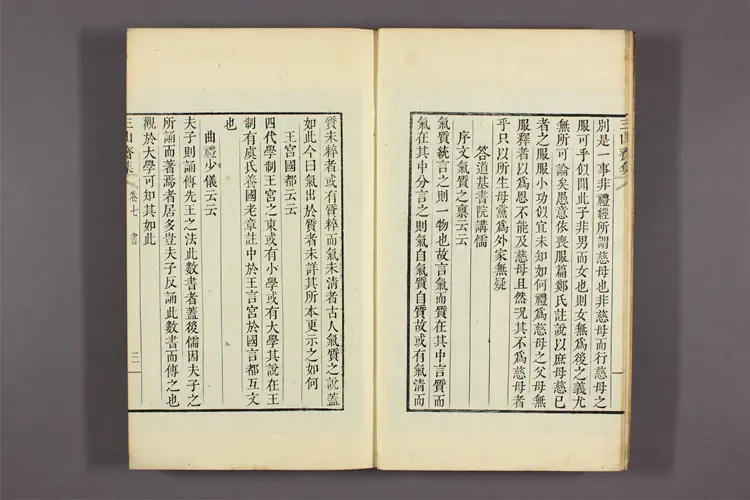 三山齋集
別是一事非禮經所謂慈母也非慈母而行慈母之
服可乎似聞此子非男而女也則女無爲後之義尤
無所可論矣愚意依喪服篇鄭氏註說以庶母慈已
者之服服小功似宜未知如何禮爲慈母之父母無
服釋者以爲恩不能及慈母且然况其不爲慈母者
乎只以所生母黨爲外家無疑
答道基書院講儒
序文氣質之稟云云
氣質統言之則一物也故言氣而質在其中言質而
氣在其中分言之則氣自氣質自質故或有氣清而
質未粹者或有質粹而氣未清者古人氣質之說蓋
如此今曰氣出於質者未詳其所本更示之如何
王宮國都云云
四代學制王宮之東或有小學或有大學其說在王
制有虞氏養國老章註中於王言宮於國言都互文
也
曲禮少儀云云
夫子則誦傳先王之法此數書者蓋後儒因夫子之
所誦而著焉者居多豈夫子反誦此數書而傳之也
觀於大學可知其如此
三山齋集 卷七 書 三